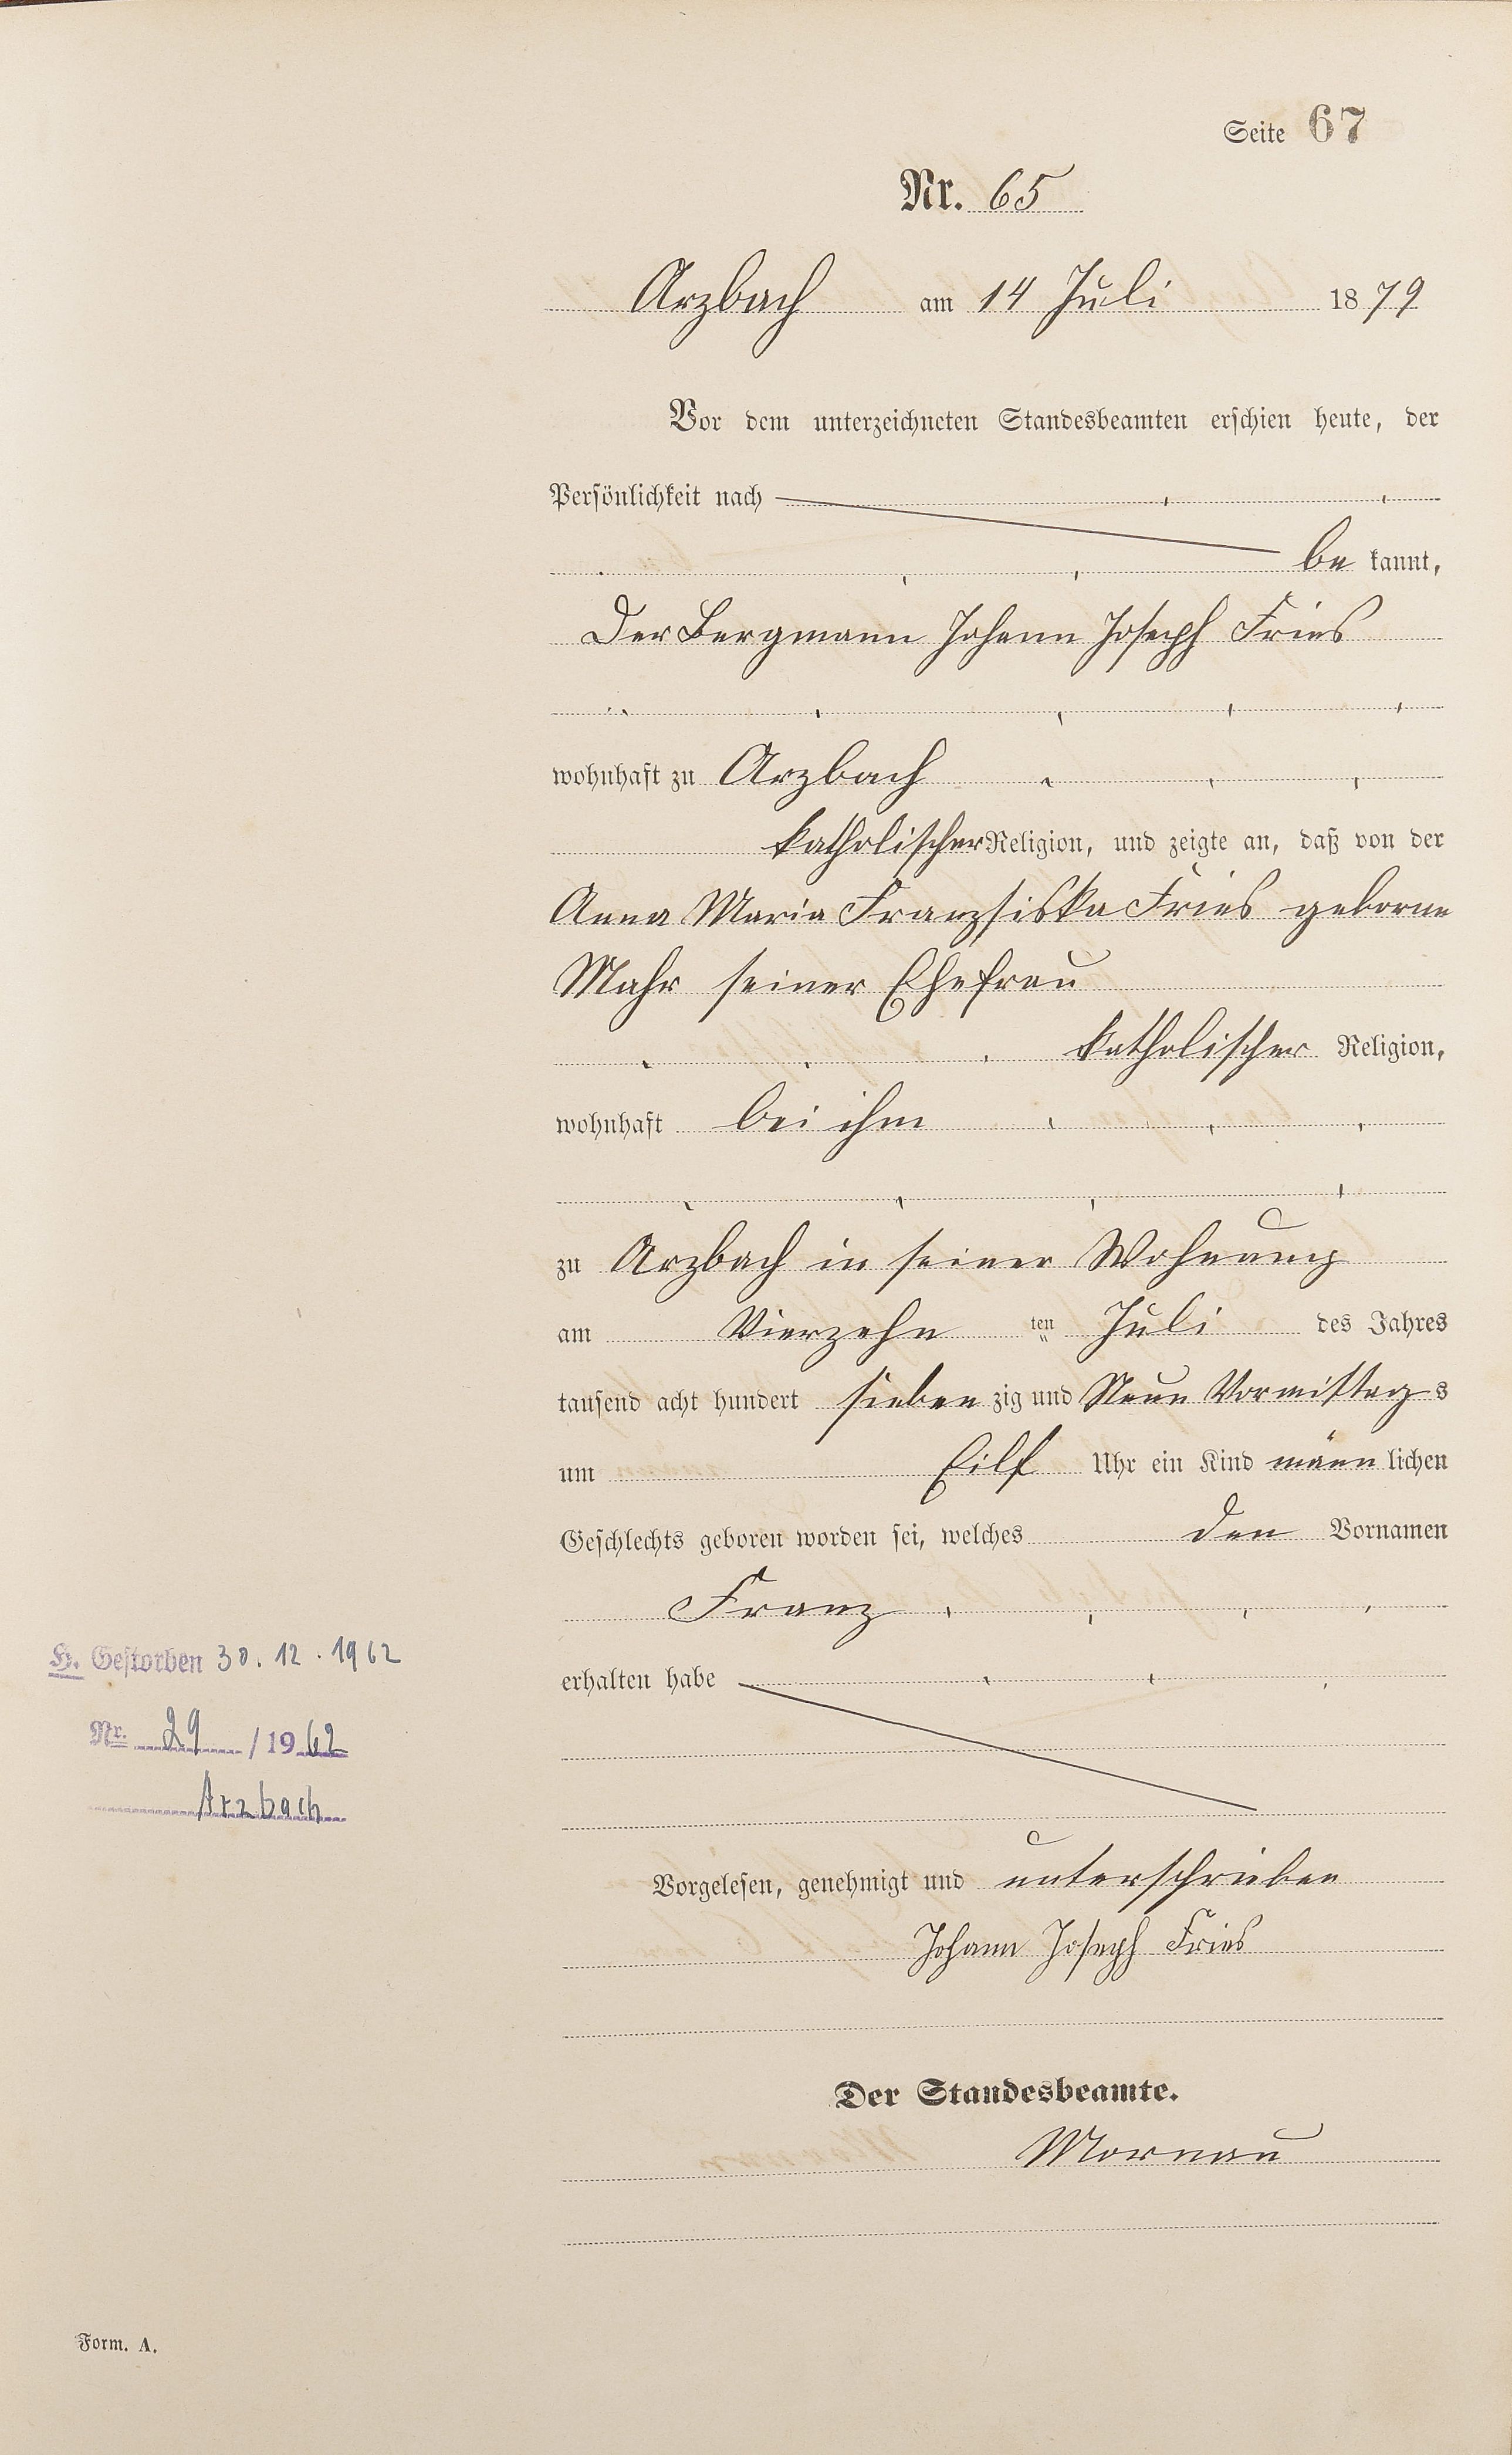 Seite 67
Nr. 65
Arzbach am 14 Juli 1879
Vor dem unterzeichneten Standesbeamten erschien heute, der
Persönlichkeit nach
be kannt,
Der Bergmann Johann Joseph Fries
wohnhaft zu Arzbach
katholischer Religion, und zeigte an, daß von der
Anna Maria Franzsiska Fries geborne
Mahr seiner Ehefrau
katholischer Religion,
wohnhaft bei ihm
zu Arzbach in seiner Wohnung
am Vierzehn ten Juli des Jahres
tausend acht hundert sieben zig und Neun Vormittag s
um Eilf Uhr ein Kind männ lichen
Geschlechts geboren worden sei, welches den Vornamen
Franz
erhalten habe
H. Gestorben 30.12.1962
Nr. 29 / 1962
Arzbach
Vorgelesen, genehmigt und unterschrieben
Johann Joseph Fries
Der Standesbeamte.
Mornau
Form. A.